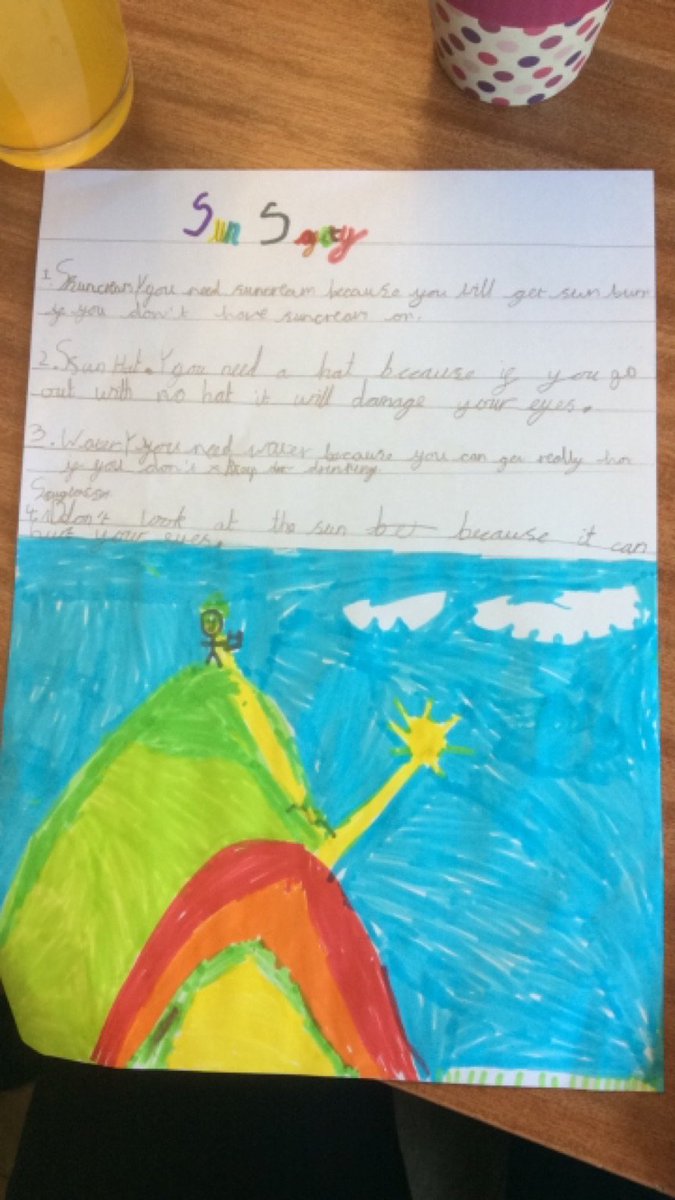 Sun Safty
1. Suncream you need suncream because you will get sun burn
if you don't have suncream on.
2. Sun Hat. you need a hat because if you go
out with no hat it will damage your eyes.
3. Water you need water because you can get really hot
if you don't drinking
4. Don't look at the sun because it can
hurt your eyes.